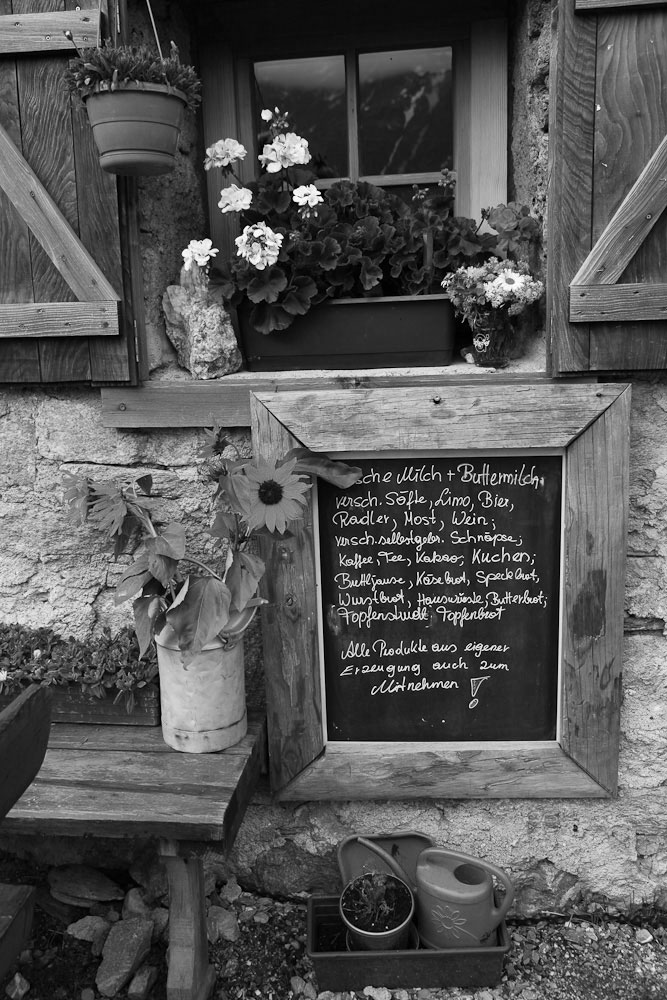 ische Milch + Buttermilch,
versch. Säfte, Limo, Bier,
Radler, Most, Wein;
versch. selbstgebr. Schnäpse;
Kaffee, Tee, Kakao, Kuchen;
Buttljause, Käsebrot, Speckbrot,
Wurstbrot, Hauswürste, Butterbrot;
Topfenbrot
Alle Produkte aus eigener
Erzeugung auch zum
Mitnehmen !